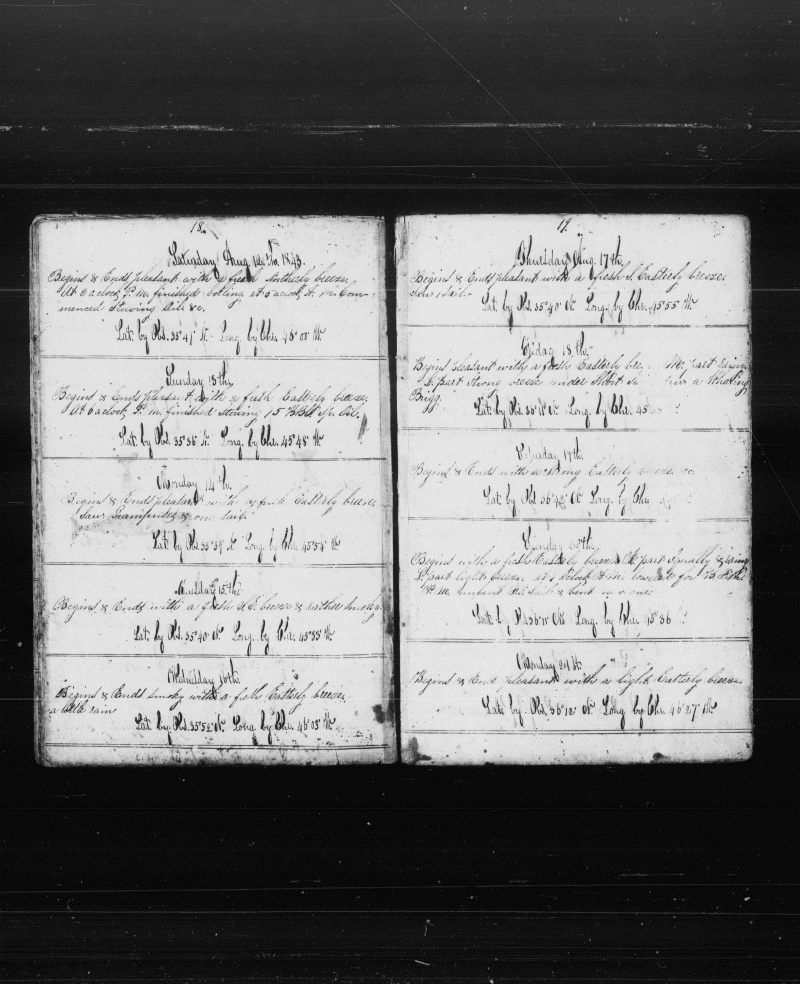 18.
Saturday Aug. 12th 1843.
Begins & Ends pleasant with a fresh Easterly breeze.
At 2 oclock P. M. finished boiling at 5 oclock A. M. Com-
menced Stowing Oil &c.
Lat. by Obs. 35°41' N. Long. by Chr. 45°08' W.
Sunday 13th.
Begins & Ends pleasant with a fresh Easterly breeze.
At 6 oclock P. M. finished stowing 15 Bbls Sp. Oil.
Lat. by Obs. 35°36' N. Long. by Chr. 45°48' W.
Monday 14th.
Begins & Ends pleasant with a fresh Easterly breeze
Saw Grampuses & one Sail.
Lat. by Obs. 35°39' N. Long. by Chr. 45°54' W.
Tuesday 15th.
Begins & Ends with a fresh S. E. breeze & rather Smoky.
Lat. by Obs. 35°40' N. Long. by Chr. 45°35' W.
Wednesday 16th.
Begins & Ends Smoky with a fresh Easterly breeze.
a little rain
Lat. by Obs. 35°52' N. Long. by Chr. 46°05' W.
19.
Thursday Aug. 17th.
Begins & Ends pleasant with a fresh S. Easterly breeze.
Saw 1 Sail.
Lat. by Obs. 35°40' N. Long. by Chr. 45°55' W.
Friday 18th.
Begins pleasant with a fresh Easterly part
L. part Strong under Short a Whaling
Brigg.
Lat. by Obs. N. Long. by Chr.
19th.
Begins & Ends with a Strong Easterly breeze
Lat. by Obs. 36°42' N. Long. by Chr.
Sunday 20th.
Begins with a fresh Easterly breeze M. part Squally &
L. part light breeze. at A. M. for
P. M. unbent & bent
Lat. by N. Long. by Chr. 45°36'
Monday 21st.
Begins & Ends pleasant with a light Easterly breeze.
Lat. by Obs. 36°12' N. Long. by Chr. 46°27' W.